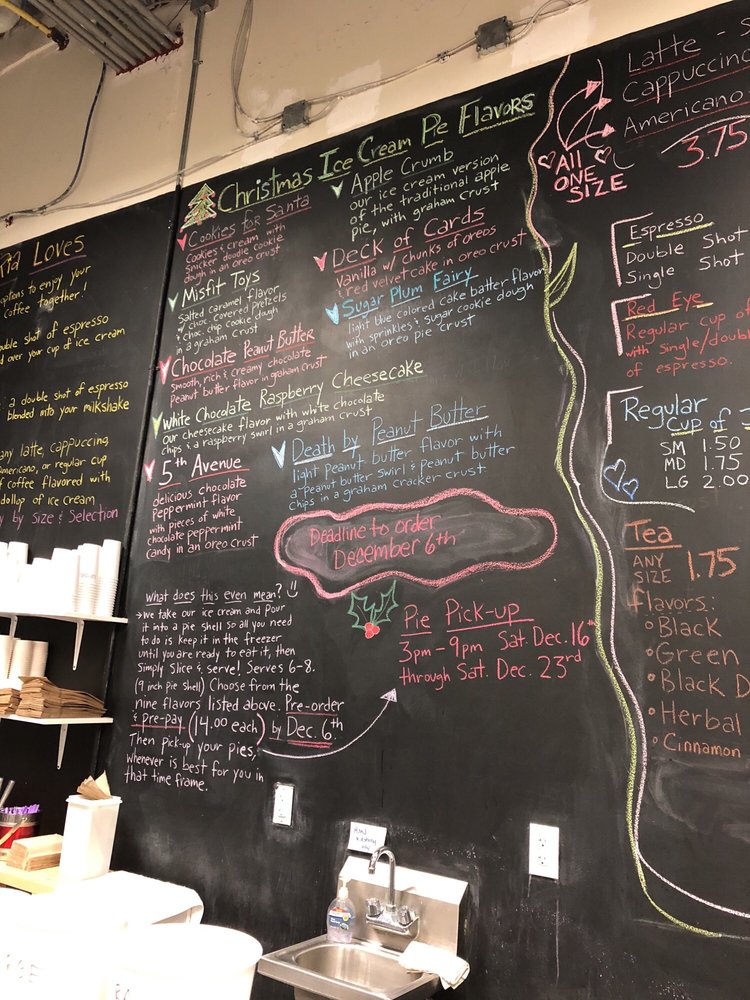 Loves
options to enjoy your
coffee together!
double shot of espresso
over your cup of ice cream
a double shot of espresso
blended into your milkshake
any latte, cappuccino,
americano, or regular cup
of coffee flavored with
dollop of ice cream
by Size & Selection
Christmas Ice Cream Pie Flavors
Cookies for Santa
Cookies & cream with
Snicker doodle cookie
dough in an oreo crust
Misfit Toys
Salted caramel flavor
w/ choc. covered pretzels
& choc. chip cookie dough
in a graham crust
Chocolate Peanut Butter
Smooth, rich & creamy chocolate
Peanut butter flavor in graham crust
Apple Crumb
our ice cream version
of the traditional apple
pie, with graham crust
Deck of Cards
Vanilla w/ chunks of oreos
& red velvet cake in oreo crust
Sugar Plum Fairy
light blue colored cake batter flavor
with sprinkles & sugar cookie dough
in an oreo pie crust
White Chocolate Raspberry Cheesecake
our cheesecake flavor with white chocolate
chips & a raspberry swirl in a graham crust
5th Avenue
delicious chocolate
Peppermint flavor
with pieces of white
chocolate peppermint
candy in an oreo crust
Death by Peanut Butter
light peanut butter flavor with
a peanut butter swirl & peanut butter
chips in a graham cracker crust
Deadline to order
December 6th
What does this even mean?
we take our ice cream and pour
it into a pie shell so all you need
to do is keep it in the freezer
until you are ready to eat it, then
Simply slice & serve! Serves 6-8.
(9 inch pie shell) Choose from the
nine flavors listed above. Pre-order
& pre-pay (14.00 each) by Dec. 6th
Then pick-up your pies,
whenever is best for you in
that time frame.
Pie Pick-up
3pm - 9pm Sat. Dec. 16th
through Sat. Dec. 23rd
Latte -
Cappuccino
Americano
3.75
All
ONE
SIZE
Espresso
Double Shot
Single Shot
Red Eye
Regular cup of
with single/double
of espresso.
Regular
Cup of
SM 1.50
MD 1.75
LG 2.00
Tea
ANY
SIZE 1.75
flavors:
Black
Green
Black D
Herbal
Cinnamon